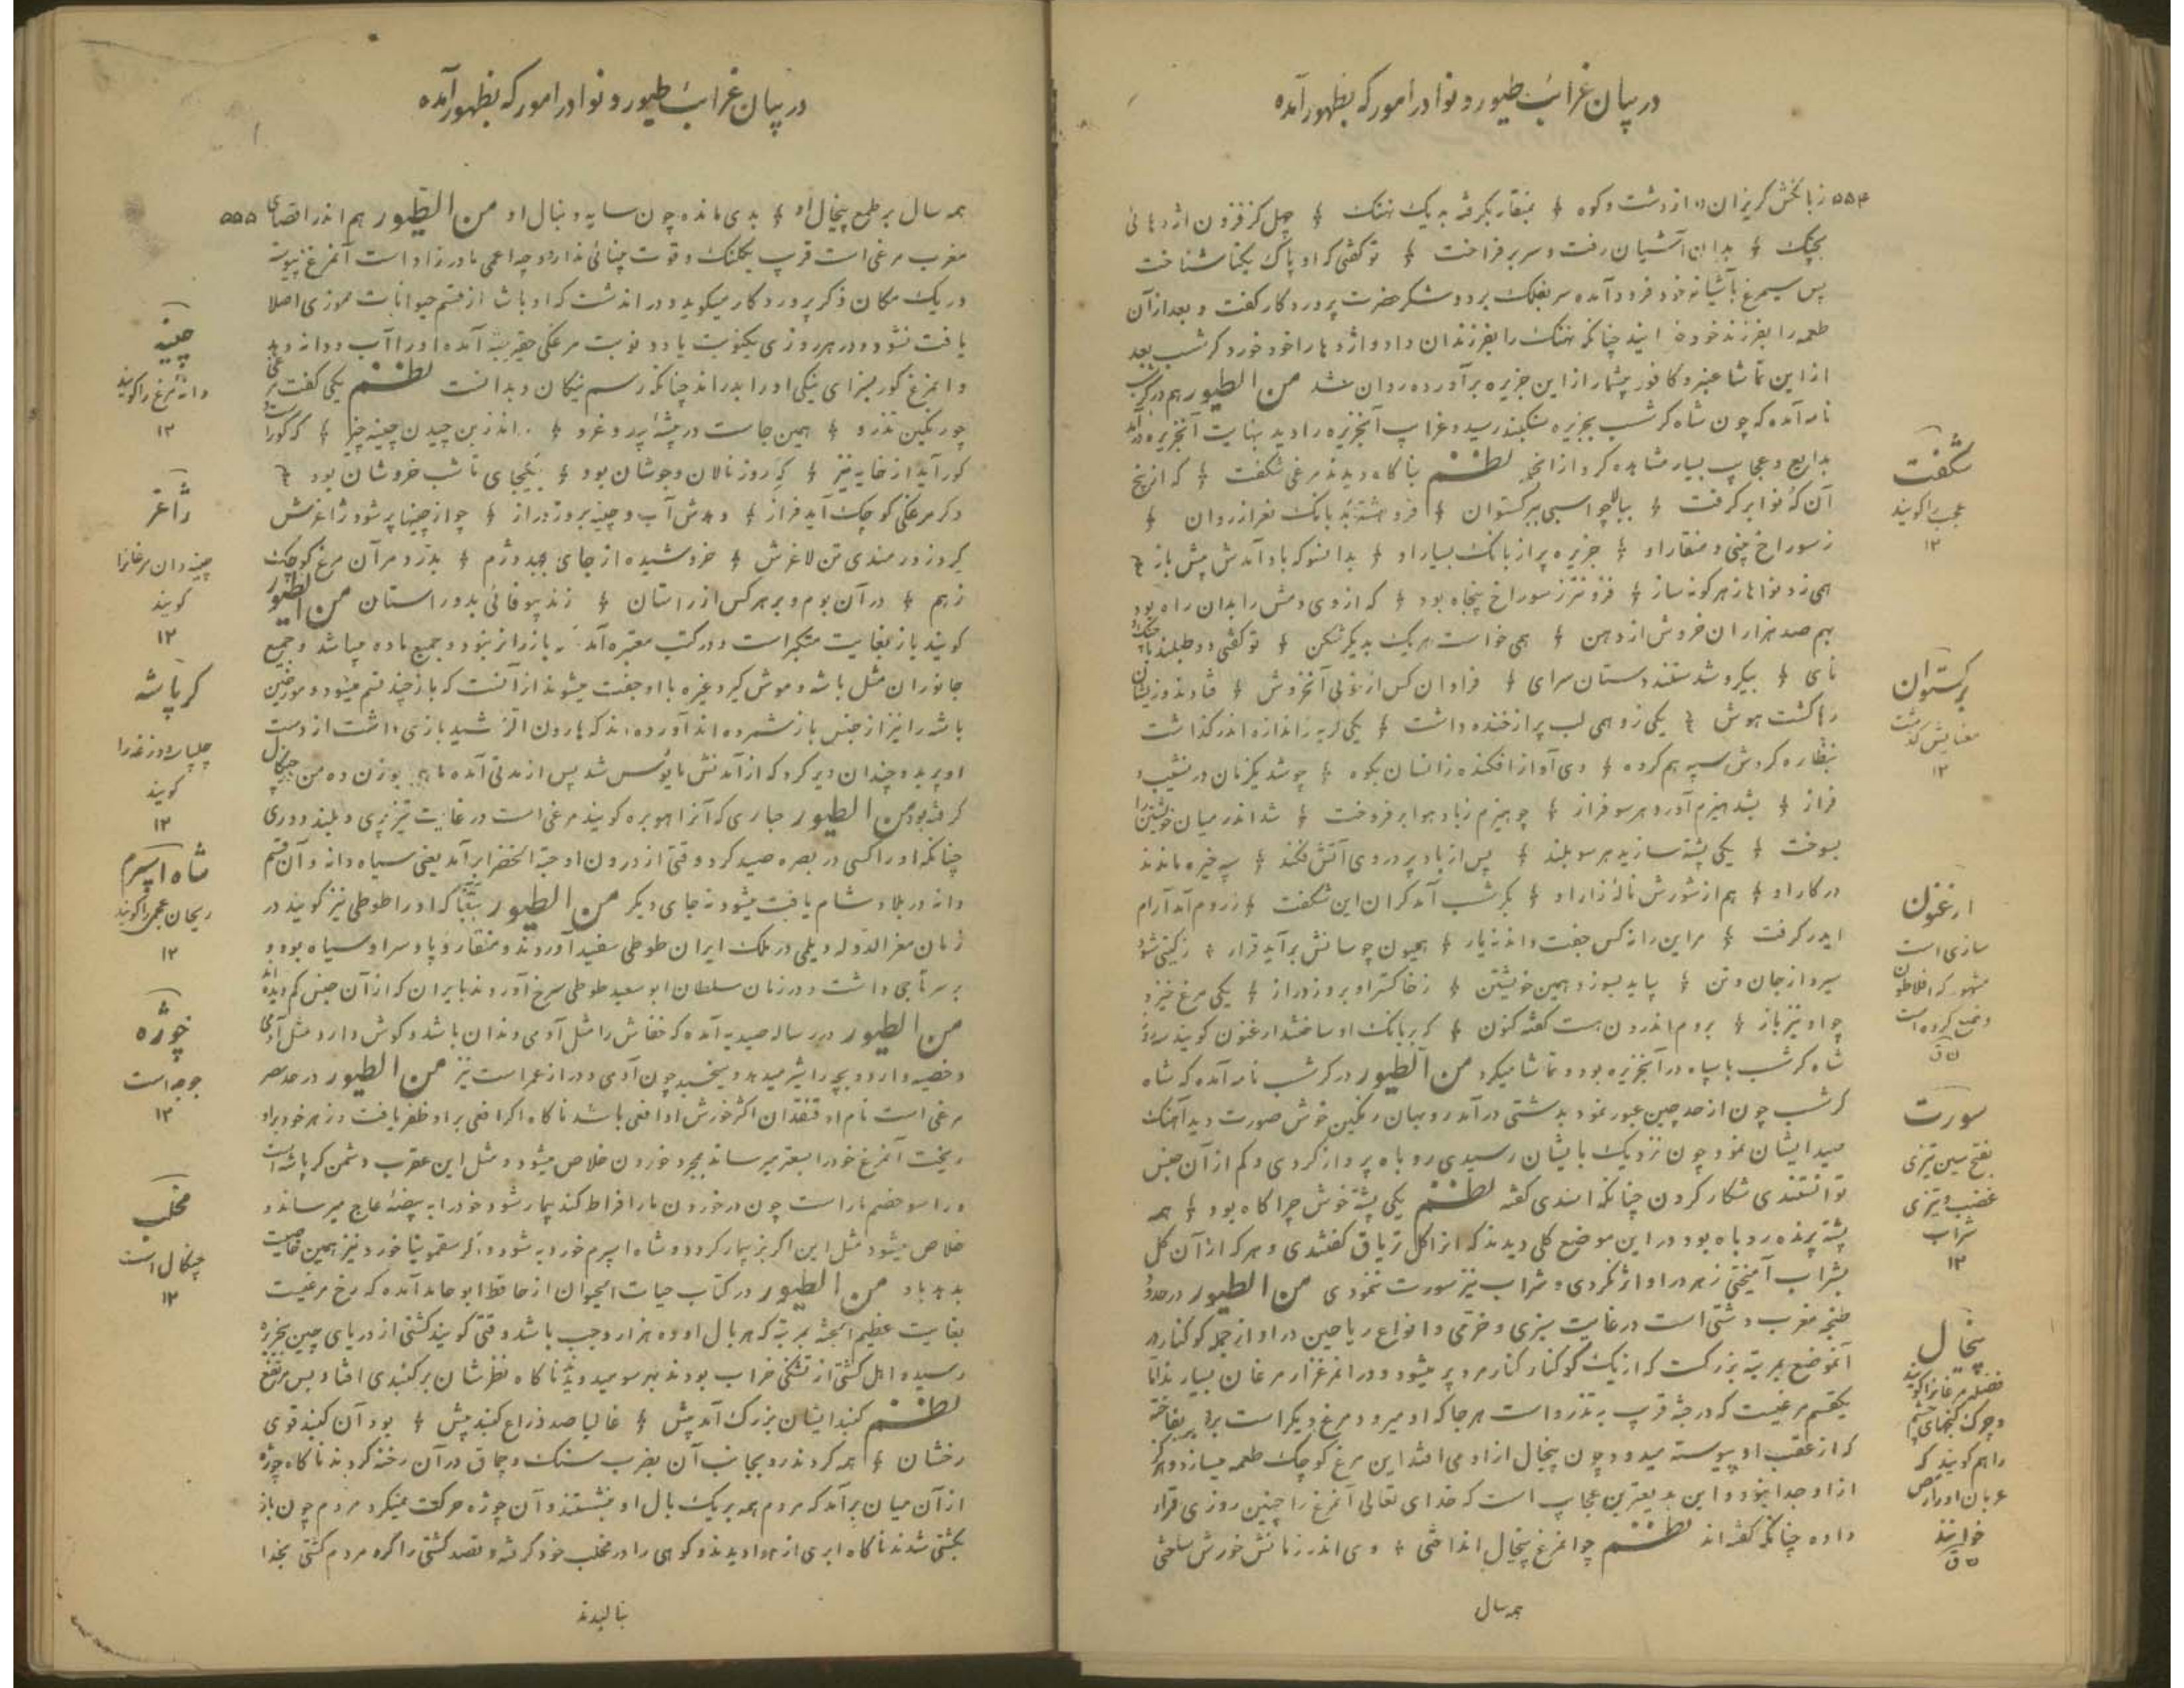 در بیان غرائب طیور و نوادر امور که بظهور آمده
۵۵۴ ز بانگش گریزان دد از دشت و کوه بمنقار بگرفته بد یک نهنگ چهل گز فزون اژدهائی
بچنگ بدان آشیان رفت و سر بر فراخت تو گفتی که او پاک یکتا شناخت
پس سیمرغ بآشیانه خود فرود آمده سر بفلک برد و شکر حضرت پروردگار گفت و بعد از آن
طعمه را بفرزند خود چنانکه نهنگ را بفرزندان داد و اژدها را خود خورد گرشسب بعد
از این تماشا عنبر و کافور بیشمار از این جزیره برآورده روان شد من الطیور هم در گرشسب
نامه آمده که چون شاه گرشسب بجزیره سکند رسید و غرایب آنجزیره را دید بنهایت آنجزیره درآمد
بدایع و عجایب بسیار مشاهده کرد از آنجمله نظم بناگاه دیدند مرغی شگفت که از پنج
آن که نوا بر گرفت ببالا چو اسبی ببرگستوان فروهشته پر بانگ نغز از روان
ز سوراخ چینی و منقار او جزیره پر از بانگ بسیار او بدانسو که باد آمدش پیش باز
همی زد نواها ز هر گونه ساز فزونتر ز سوراخ پنجاه بود که از وی دمش را بدان راه بود
بهم صد هزاران خروش از دهن همی خاست هر یک بدیگر شکن تو گفتی دو صد بلند با چنگ و
نای بیکره شدستند دستان سرای فراوان کس از خوبی آنخروش فتادند و زیشان
رها گشت هوش یکی زو همی لب پر از خنده داشت یکی گریه ز اندازه اندر گذاشت
بنظاره گردش سپه هم گروه وی آواز افکنده زانسان بکوه چو شد یکزمان در نشیب و
فراز بشد هیزم آورد هر سو فراز چو هیزم ز باد هوا بر فروخت شد اندر میان خویشتن را
بسوخت یکی پشته سازید هر سو بلند پس از باد پر در وی آتش فکند سپه خیره ماندند
در کار او هم از شورش ناله زار او بگرشسب آمد گران این شگفت ز روم آمد آرام
ایدر گرفت مر این را نه کس جفت داند نه یار همیدون چو سانش برآید هزار ز گیتی شود
سیر از جان و تن بیاید بسوزد همین خویشتن ز خاکستر او بروز دراز یکی مرغ خیزد
چو او نیز باز بروم اندرون هست گفته کنون که بر بانگ او ساختند ارغنون گویند سه روز
شاه گرشسب با سپاه در آنجزیره بود و تماشا میکرد من الطیور در گرشسب نامه آمده که شاه
گرشسب چون از حد چین عبور نمود بدشتی درآمد روبهان رنگین خوش صورت دید آهنگ
صید ایشان نمود چون نزدیک بایشان رسیدی روباه پرواز کردی و کم از آن جنس
توانستندی شکار کردن چنانکه اسدی گفته نظم یکی پشته خوش چراگاه بود همه
پشته پرنده روباه بود در این موضع گلی دیدند که آنرا گل تریاق گفتندی و هر که از آن گل
بشراب آمیختی زهر در او اثر نکردی و شراب نیز سورت ننمودی من الطیور در حدود
طنجه مغرب دشتی است در غایت سبزی و خرمی و انواع ریاحین در او از جمله کوکنار در
آنموضع بمرتبه بزرگست که از یک کوکنار کنار مرد پر میشود و در آنمرغزار مرغان بسیارند اما
یکقسم مرغیست که در جثه قریب بتذرو است هر جا که او میرود مرغ دیگر است برابر بفاخته
که از عقب او پیوسته میدود چون پیخال از او می افتد این مرغ کوچک طعمه میسازد و هرگز
از او جدا نبود و این بدیعترین عجایب است که خدای تعالی آنمرغ را چنین روزی قرار
داده چنانکه گفته اند نظم چو آنمرغ پیخال انداختی وی اندر زمانش خورش ساختی
همه سال
شگفت
عجب را گویند
۱۲
برگستوان
معنایش گذشت
۱۲
ارغنون
سازی است
مشهور که افلاطون
وضع کرده است
ق
سورت
بفتح سین تیزی
غضب و تیزی
شراب
۱۲
پیخال
فضله مرغان را گویند
و چرک کنجهای چشم
را هم گویند که
عربان او را رمص
خوانند
ق
در بیان غرائب طیور و نوادر امور که بظهور آمده
همه سال بر طمع پیخال او بدی مانده چون سایه دنبال او من الطیور هم اندر اقصای ۵۵۵
مغرب مرغی است قریب بکلنگ و قوت بینائی ندارد چه اعمی مادرزاد است آنمرغ پیوسته
در یک مکان ذکر پروردگار میگوید و در آن دشت که او باشد از قسم حیوانات موذی اصلا
یافت نشود و در هر روزی یکنوبت یا دو نوبت مرغکی حقیر جثه آمده او را آب و دانه دهد
و آنمرغ کور بسزای نیکی او را بدراند چنانکه رسم نیکان و بدانست نظم یکی گفت مرغی
چو رنگین تذرو همین جاست در بیشه پرید و غرو اندر بن چیدن چینه چیز که کور است و
کور آید از خایه نیز که روز نالان و جوشان بود بیکجای تا شب خروشان بود
دگر مرغکی کوچک آید فراز دهدش آب و چینه بروز دراز چو از چینها پر شود ژاغرش
گیرد زورمندی تن لاغرش خروشیده از جای بجهد دژم بدرد مر آن مرغ کوچک
ز هم در آن بوم و بر هر کس از راستان زند بیوفائی بدو راستان من الطیور
گویند باز بغایت متکبر است و در کتب معتبره آمده باز را نر نبود و جمیع ماده میباشد و جمیع
جانوران مثل باشه و موش گیر و غیره با او جفت میشوند از آنست که باز چند قسم میشود و مورخین
باشه را نیز از جنس باز شمرده اند آورده اند که هارون الرشید بازی داشت از دست
او پرید و چندان دیر کرد که از آمدنش مایوس شد پس از مدتی آمده ماهی بوزن ده من بچنگال
گرفته بود من الطیور حباری که آنرا هوبره گویند مرغی است در غایت تیزپری و بلند و دوری
چنانکه او را کسی در بصره صید کرد و قتی از درون او حبة الخضرا برآمد یعنی سیاه دانه و آن قسم
دانه در بلاد شام یافت میشود نه جای دیگر من الطیور ببغا که او را طوطی نیز گویند در
زمان معز الدوله دیلمی در ملک ایران طوطی سفید آوردند و منقار و پا و سر او سیاه بود و
بر سر تاجی داشت و در زمان سلطان ابو سعید طوطی سرخ آوردند بایران که از آن جنس کم دیده اند
من الطیور در رساله صیدیه آمده که خفاش را مثل آدمی دندان باشد و گوش دارد مثل آدمی
و خصیه دارد و بچه را شیر میدهد و میخسبد چون آدمی و دراز عمر است نیز من الطیور در حد مصر
مرغی است نام او قنقدان اکثر خورش او افعی باشد ناگاه اگر افعی بر او ظفر یافت و زهر خود بر او
ریخت آنمرغ خود را بسعتر میرساند بمجرد خوردن خلاص میشود و مثل این عقرب دشمن کرپاشه است
و راسو خصم مار است چون در خوردن مار افراط کند بیمار شود خود را به بیضه عاج میرساند و
خلاص میشود مثل این اگر بز بیمار گردد و شاه اسپرم خورد به شود و اگر سقمونیا خورد نیز همین خاصیت
بدهد باو من الطیور در کتاب حیات الحیوان از حافظ ابو حامد آمده که رخ مرغیست
بغایت عظیم الجثه بمرتبه که هر بال او ده هزار وجب باشد وقتی گویند کشتی از دریای چین بجزیره
رسیده و اهل کشتی از تشنگی خراب بودند بهر سو میدویدند ناگاه نظرشان بر گنبدی افتاد بس مرتفع
نظم گنبد ایشان بزرگ آمد پیش غالبا صد ذراع گنبد بیش بود آن گنبد قوی
رخشان همه کردند رو بجانب آن بضرب سنگ و چماق در آن رخنه کردند ناگاه جوژه
از آن میان برآمد که مردم همه بر یک بال او بنشستند و آن جوژه حرکت نمیکرد مردم چون باز
بکشتی شدند ناگاه ابری از هوا دیدند و کوهی را در مخلب خود گرفته و قصد کشتی را کرد مردم کشتی بخدا
بنالیدند
چینه
دانه مرغ را گویند
۱۲
ژاغر
چینه دان مرغان را
گویند
۱۲
کرپاشه
چلپاسه و وزغه را
گویند
۱۲
شاه اسپرم
ریحان عجم را گویند
۱۲
جوژه
جوجه است
۱۲
مخلب
چنگال است
۱۲